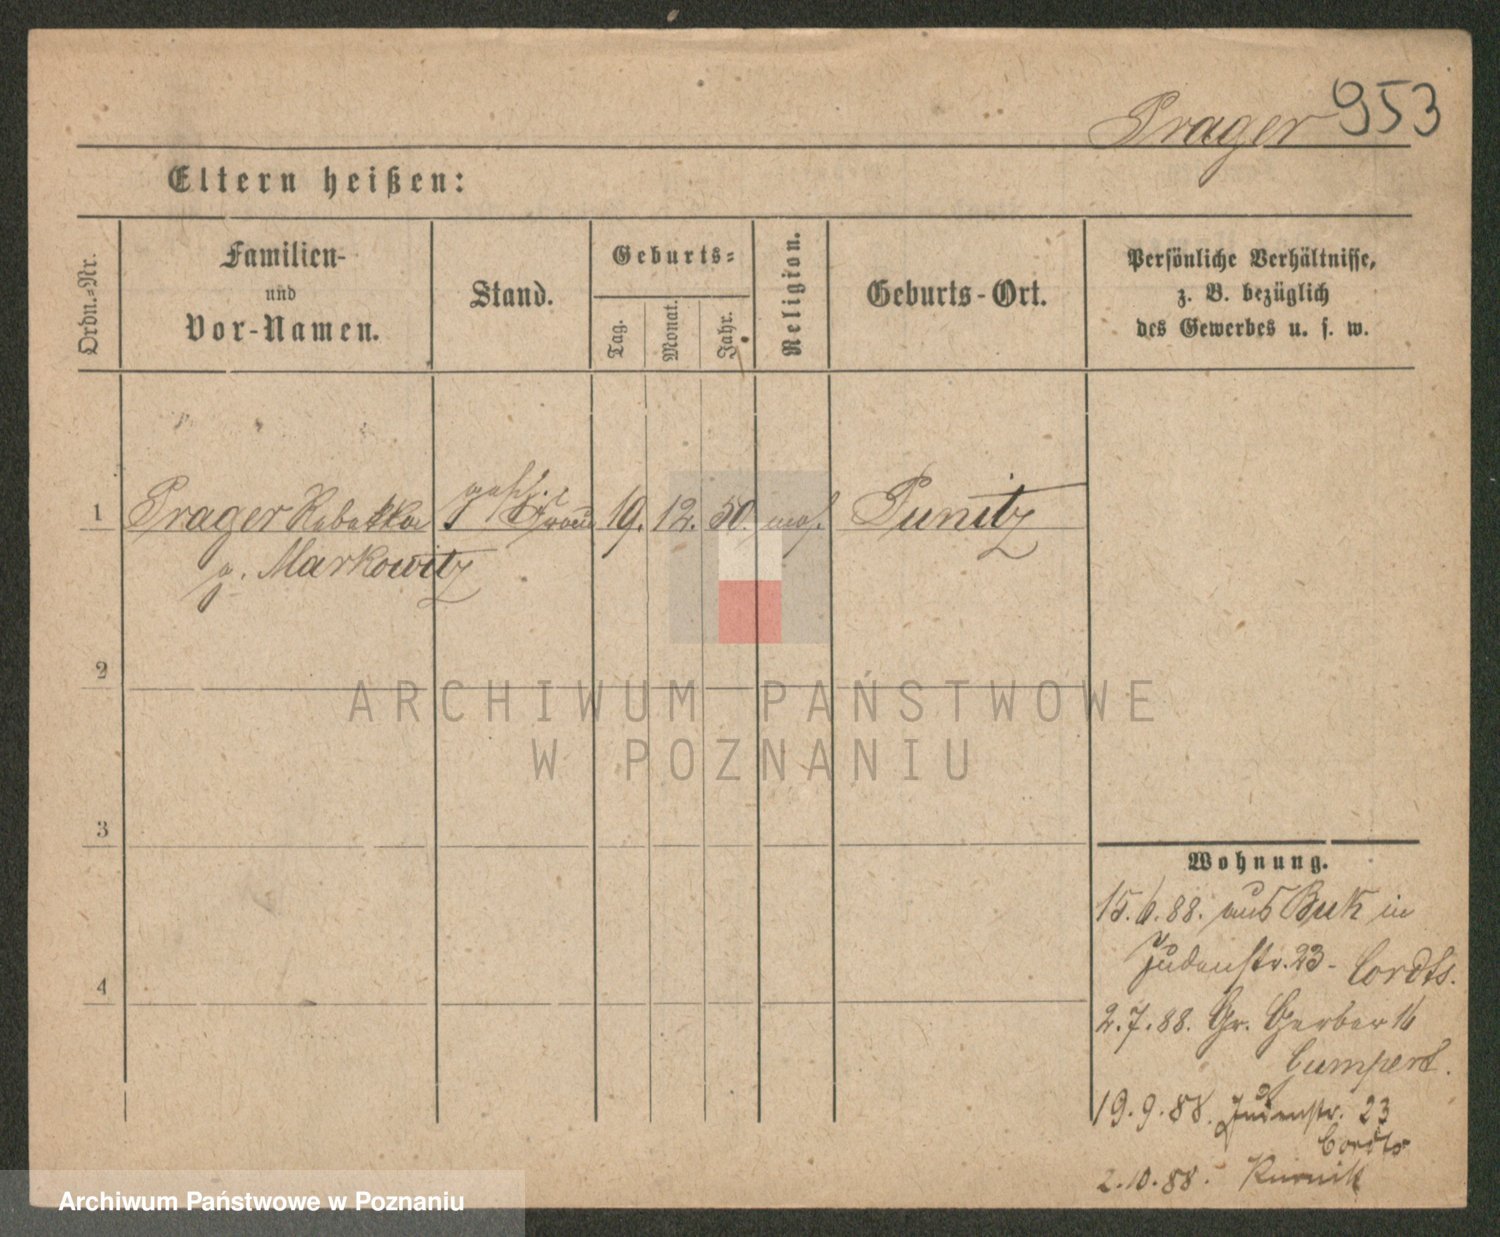 Prager 953
Eltern heißen:
Ordn.-Nr.
Familien-
und
Vor-Namen.
Stand.
Geburts-
Tag.
Monat.
Jahr.
Religion.
Geburts-Ort.
Persönliche Verhältnisse,
z. B. bezüglich
des Gewerbes u. s. w.
1 Prager Rebekka gesch. Frau 19. 12. 50. mos. Punitz
g. Markowitz
2
3
4
ARCHIWUM PAŃSTWOWE
W POZNANIU
Wohnung.
15.6.88. aus Buk in
Judenstr. 23 - Cordts.
2.7.88. Gr. Gerber 16
Gumpert.
19.9.88. Judenstr. 23
Cordts
2.10.88. Kurnik
Archiwum Państwowe w Poznaniu